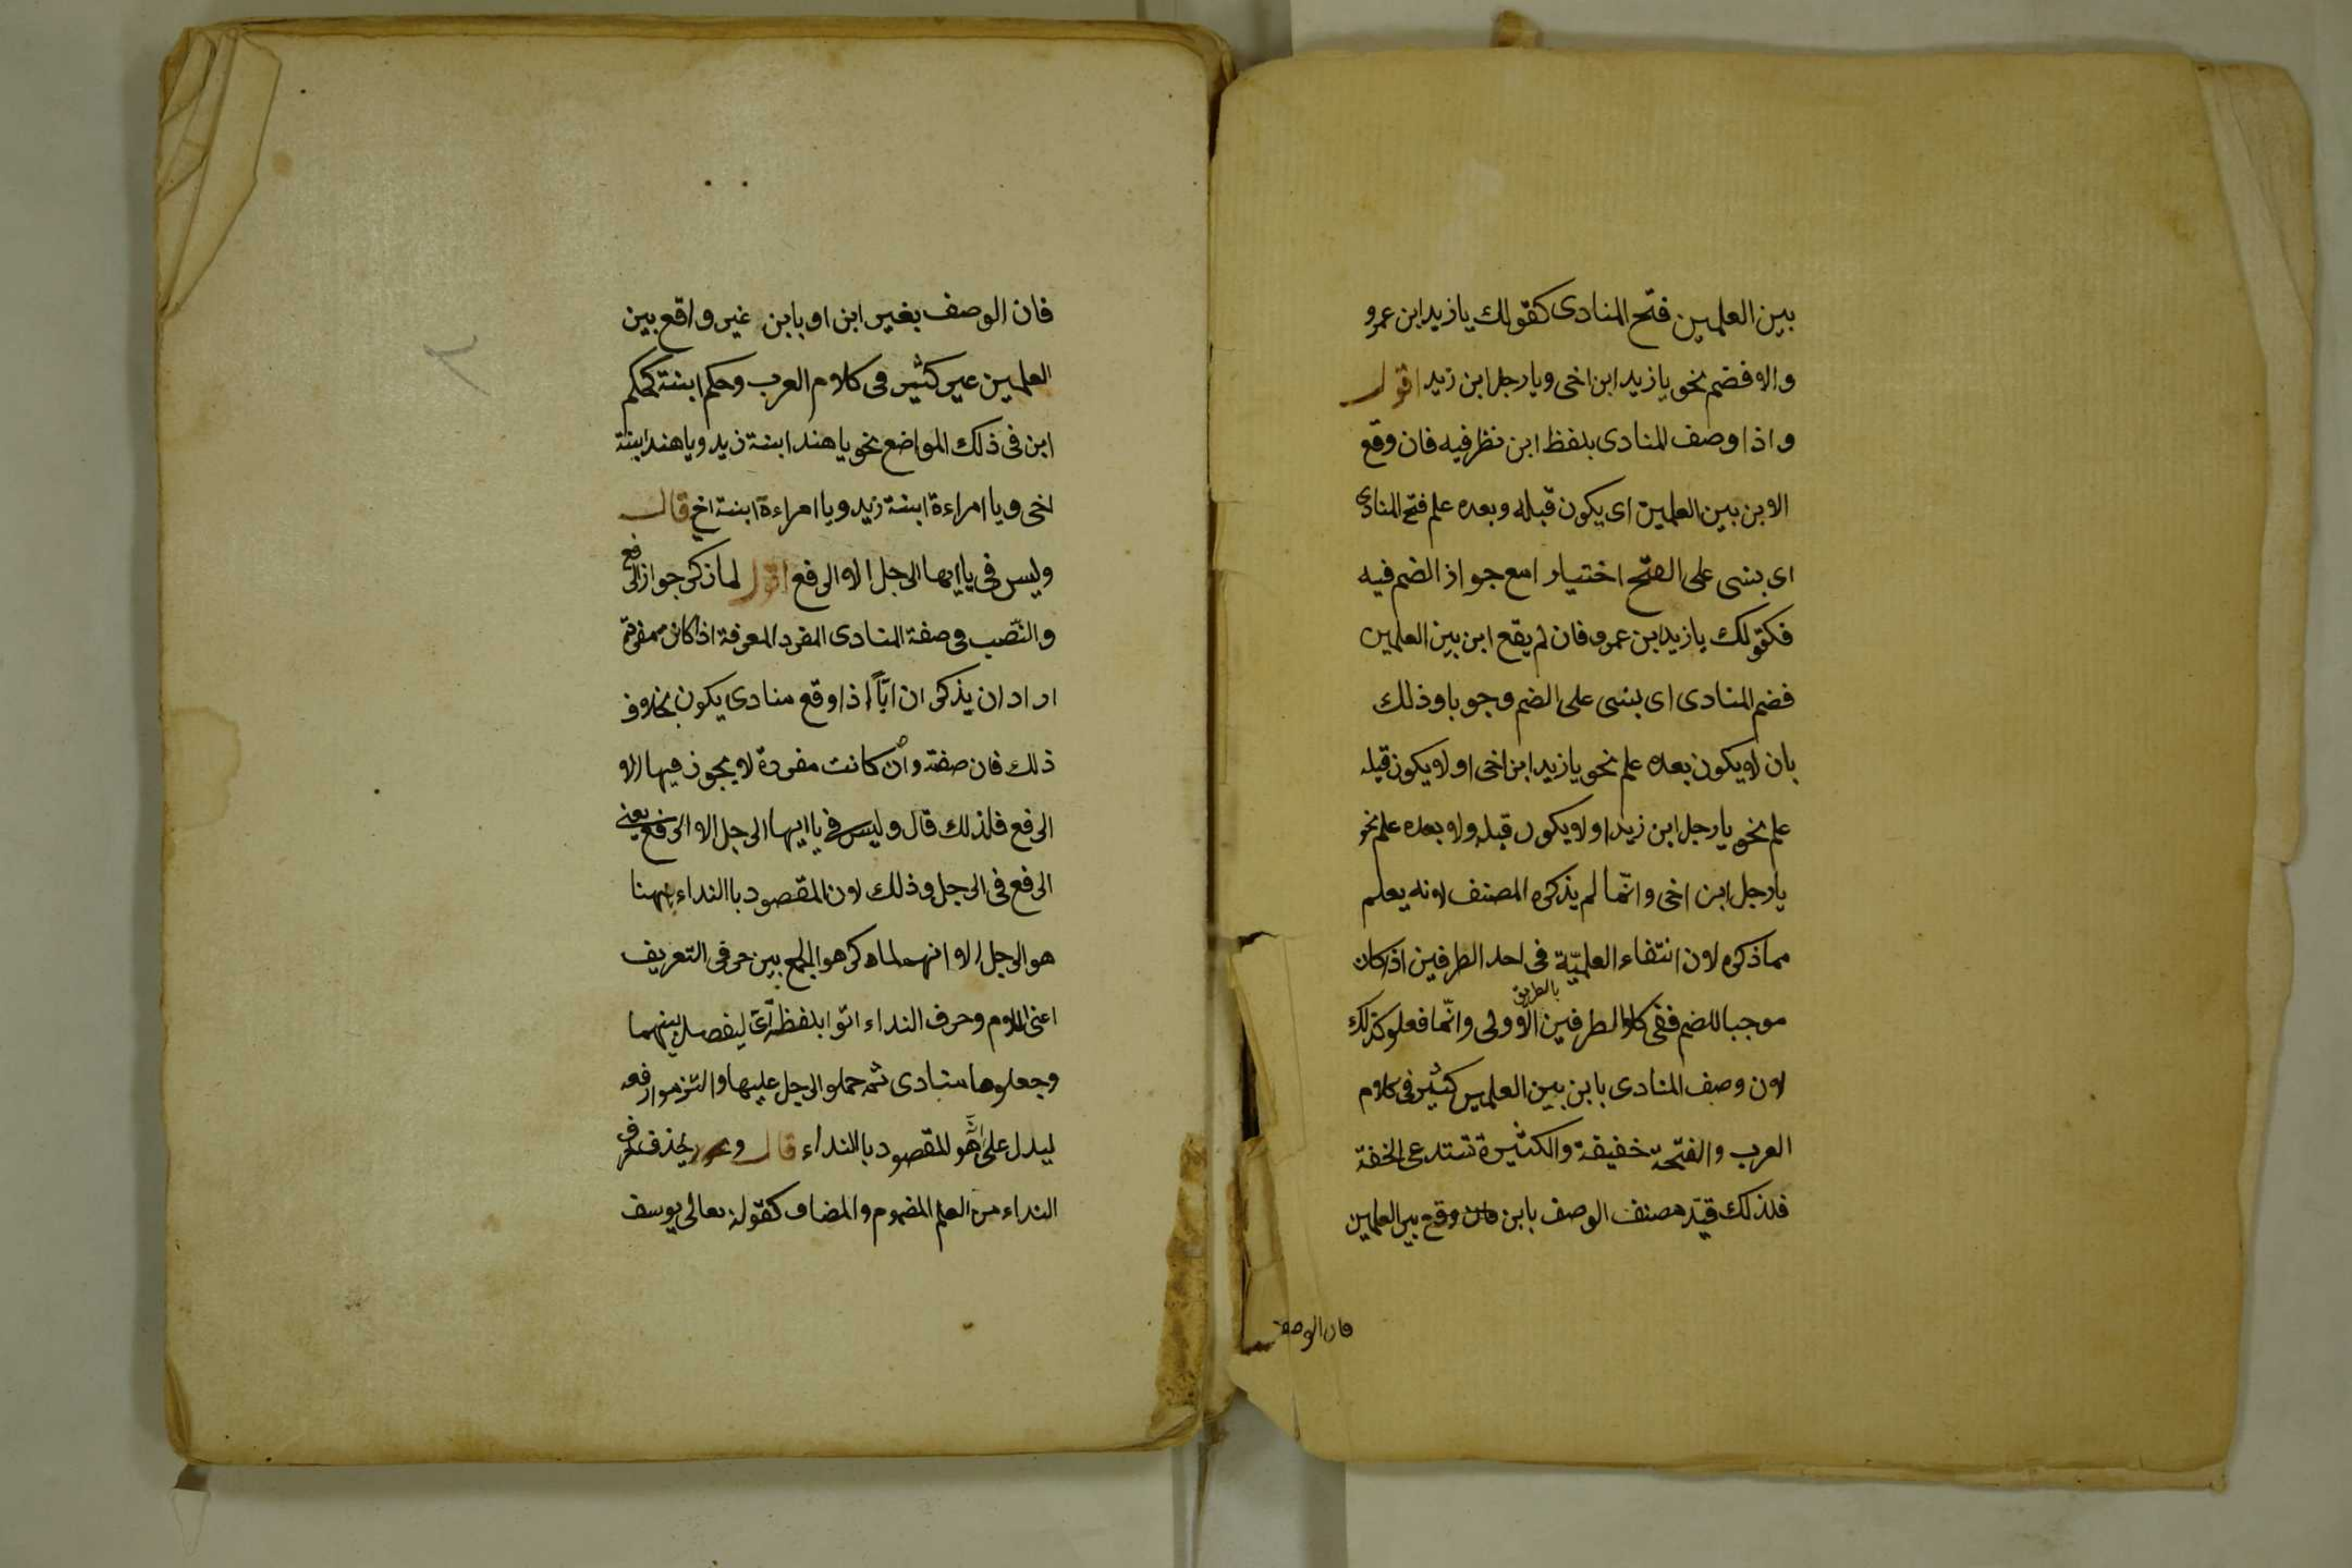 بين العلمين فتح المنادى كقولك يا زيد ابن عمرو
والا فضم نحو يا زيد ابن اخى ويا رجل ابن زيد اقول
واذا وصف المنادى بلفظ ابن نظر فيه فان وقع
الابن بين العلمين اى يكون قبله وبعده علم فتح المنادى
اى بنى على الفتح اختيارا مع جواز الضم فيه
فكقولك يا زيد ابن عمرو فان لم يقع ابن بين العلمين
فضم المنادى اى بنى على الضم وجوبا وذلك
بان لا يكون بعده علم نحو يا زيد ابن اخى او لا يكون قبله
علم نحو يا رجل ابن زيد او لا يكون قبله ولا بعده علم نحو
يا رجل ابن اخى وانّما لم يذكره المصنف لانه يعلم
مما ذكره لان انتفاء العلميّة فى احد الطرفين اذا كان
موجبا للضم ففى كلا الطرفين بالطريق الاولى وانّما فعلو كذلك
لان وصف المنادى بابن بين العلمين كثير فى كلام
العرب والفتحة خفيفة والكثيرة تستدعى الخفة
فلذلك قيّد مصنف الوصف بابن وقع بين العلمين
فان الوصف
فان الوصف بغير ابن او بابن غير واقع بين
العلمين غير كثير فى كلام العرب وحكم ابنة كحكم
ابن فى ذلك المواضع نحو يا هند ابنة زيد ويا هند ابنة
اخى ويا امراءة ابنة زيد ويا امراءة ابنة اخ قال
وليس فى يا ايها الرجل الا الرفع اقول لما ذكر جواز الرفع
والنّصب فى صفة المنادى المفرد المعرفة اذا كانت مفردة
اراد ان يذكر ان ايّاً اذا وقع منادى يكون بخلاف
ذلك فان صفته وان كانت مفردة لا يجوز فيها الا
الرفع فلذلك قال وليس فى يا ايها الرجل الا الرفع يعنى
الرفع فى الرجل وذلك لان المقصود باالنداء ههنا
هو الرجل الا انهم لما كره هو الجمع بين حرفى التعريف
اعنى اللام وحرف النداء اتوا بلفظة اىّ ليفصل بينهما
وجعلوها منادى ثم حملو الرجل عليها والتزموا رفعه
ليدل على انّه هو المقصود بالنداء قال ويجوز يحذف حرف
النداء من العلم المضموم والمضاف كقوله تعالى يوسف